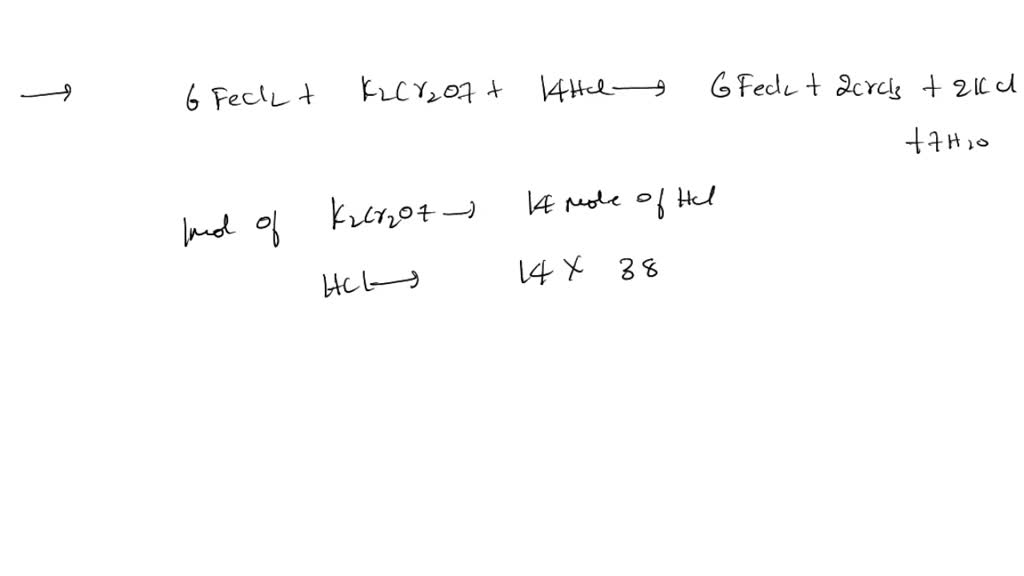 → 6 FeCl2 + K2Cr2O7 + 14HCl → 6 FeCl2 + 2CrCl3 + 2KCl
+ 7H2O
1 mol of K2Cr2O7 → 14 mole of HCl
HCl → 14 X 38